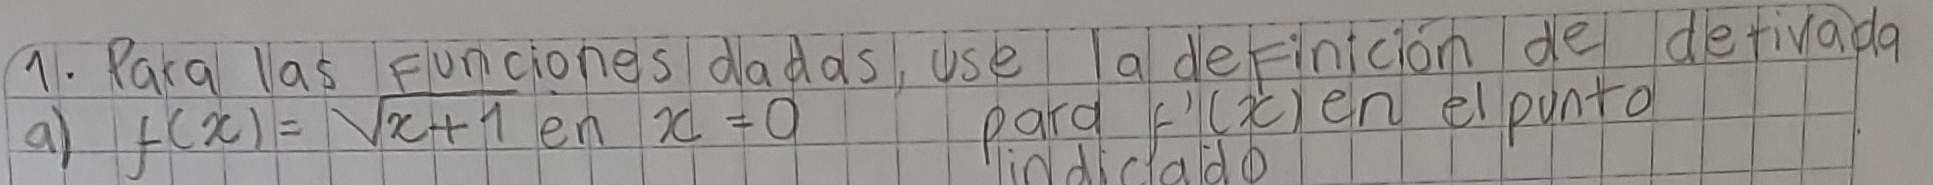 1. Para las funciones dadas, use la definición de derivada
para f'(x) en el punto
indicado
a) f(x) = √x+1 en x = 0